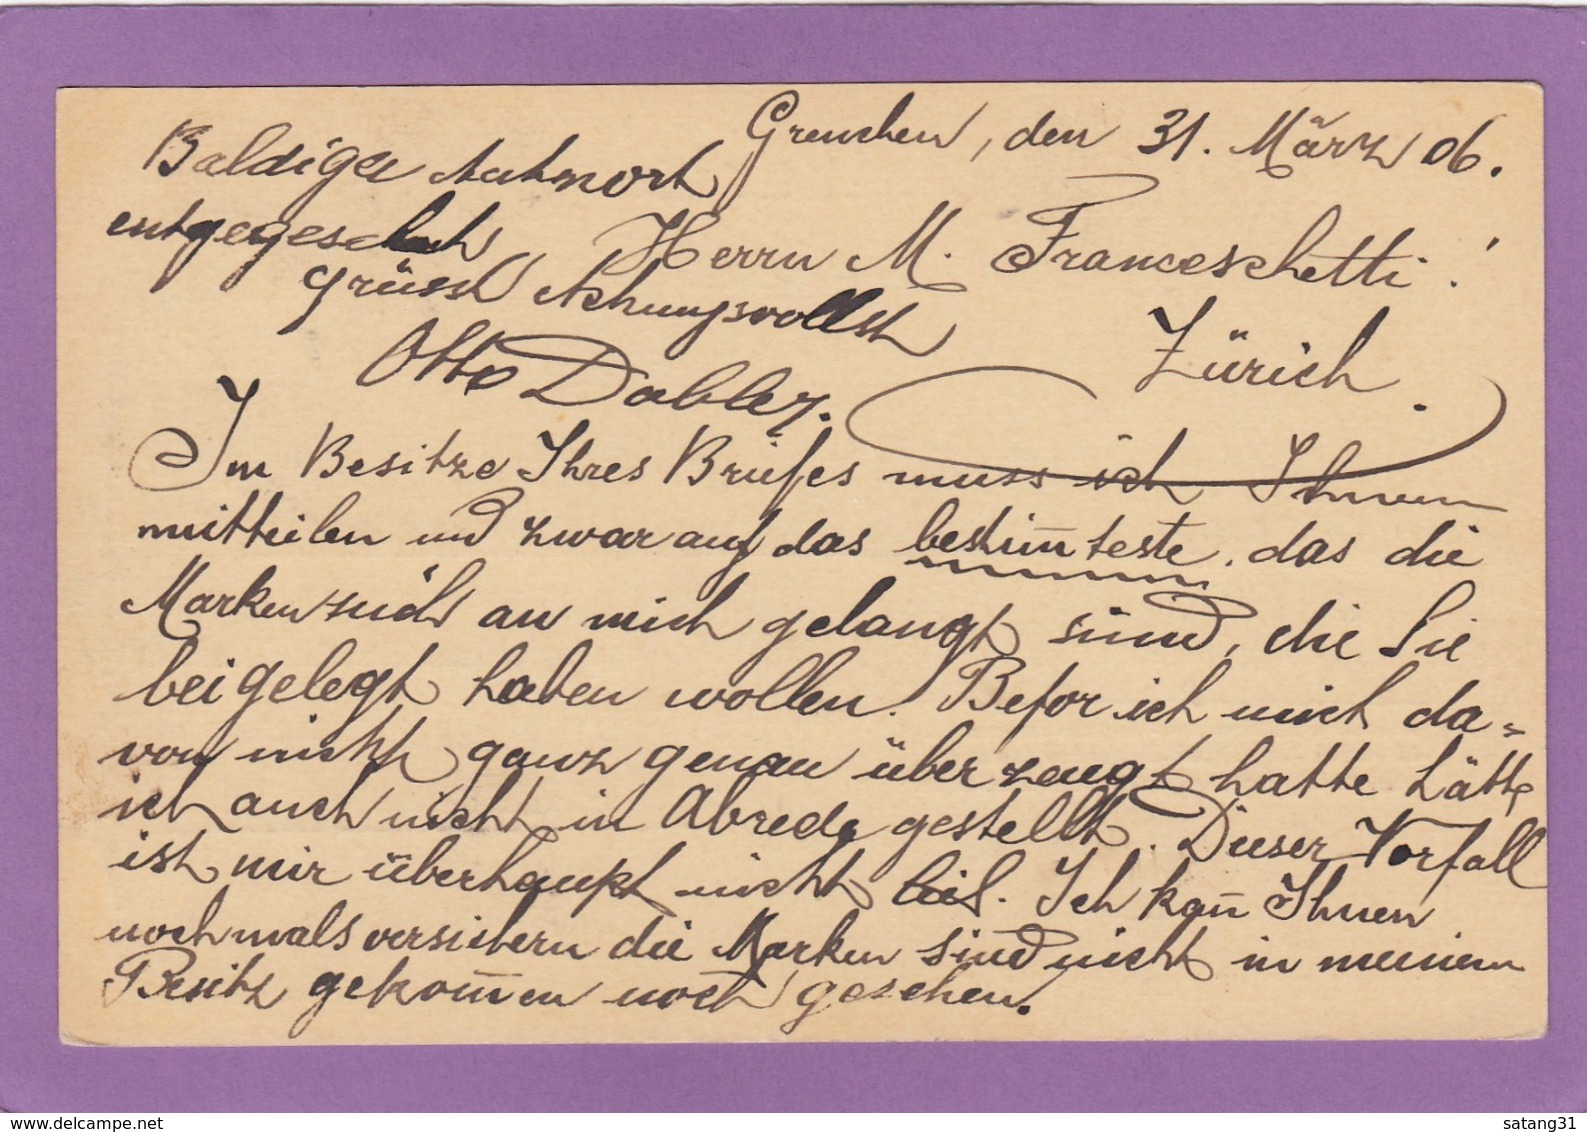 Grenchen, den 31. März 06.
Herrn M. Franceschetti!
Zürich.
Im Besitze Ihres Briefes muss ich Ihnen
mitteilen und zwar auf das bestim̅teste, das die
Marken nich an mich gelangt sind, die Sie
beigelegt haben wollen. Befor ich mich da=
von nicht ganz genau überzeugt hatte hätte
ich auch nicht in Abrede gestellt. Dieser Vorfall
ist mir überhaupt nicht lieb. Ich kan̅ Ihnen
nochmals versichern die Marken sind nicht in meinem
Besitz gekom̅en noch gesehen.
Baldiger Antwort
entgegesehend
grüsst Achtungsvollst
Otto Dobler.
www.delcampe.net
satang31